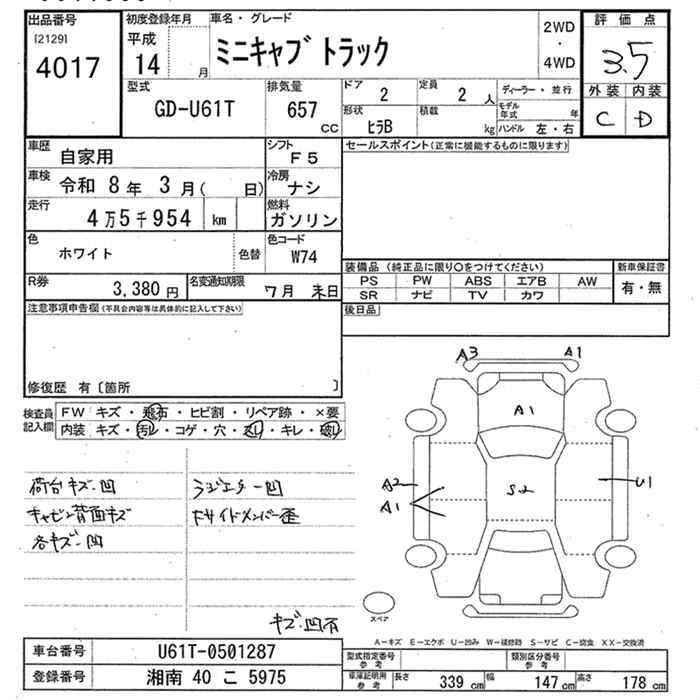 出品番号 初度登録年月 車名・グレード 2WD 評価点
[2129] 平成 ミニキャブ トラック ・ 3.5
4017 14 月 4WD
外装 内装
型式 排気量 ドア 定員 ディーラー・並行
GD-U61T 657 cc 2 2 人 モデル年式 年 C D
形状 積載
ヒラB kg ハンドル 左・右
車歴 自家用 シフト F5 セールスポイント(正常に機能するものに限ります)
車検 令和 8年 3月( 日) 冷房 ナシ
走行 4万5千954 km 燃料 ガソリン
色 ホワイト 色替 色コード W74
装備品 (純正品に限り○をつけてください) 新車保証書
R券 3,380円 名変通知期限 7月 末日
PS PW ABS エアB AW 有・無
SR ナビ TV カワ
注意事項申告欄(不具合内容等は具体的に記入して下さい) 後日品
修復歴 有〔箇所 〕
検査員記入欄
FW キズ・飛石・ヒビ割・リペア跡・×要
内装 キズ・汚レ・コゲ・穴・スレ・キレ・破レ
A3 A1
A1
A2 S2 U1
A1
荷台キズ・凹 ラジエター凹
キャビン背面キズ Fサイドメンバー歪
各キズ・凹
キズ・凹有
スペア
A-キズ E-エクボ U-凹み W-補修跡 S-サビ C-腐食 XX-交換済
車台番号 U61T-0501287 型式指定番号 参考 類別区分番号 参考
登録番号 湘南 40 こ 5975 車庫証明用 参考 長さ 339 cm 幅 147 cm 高さ 178 cm